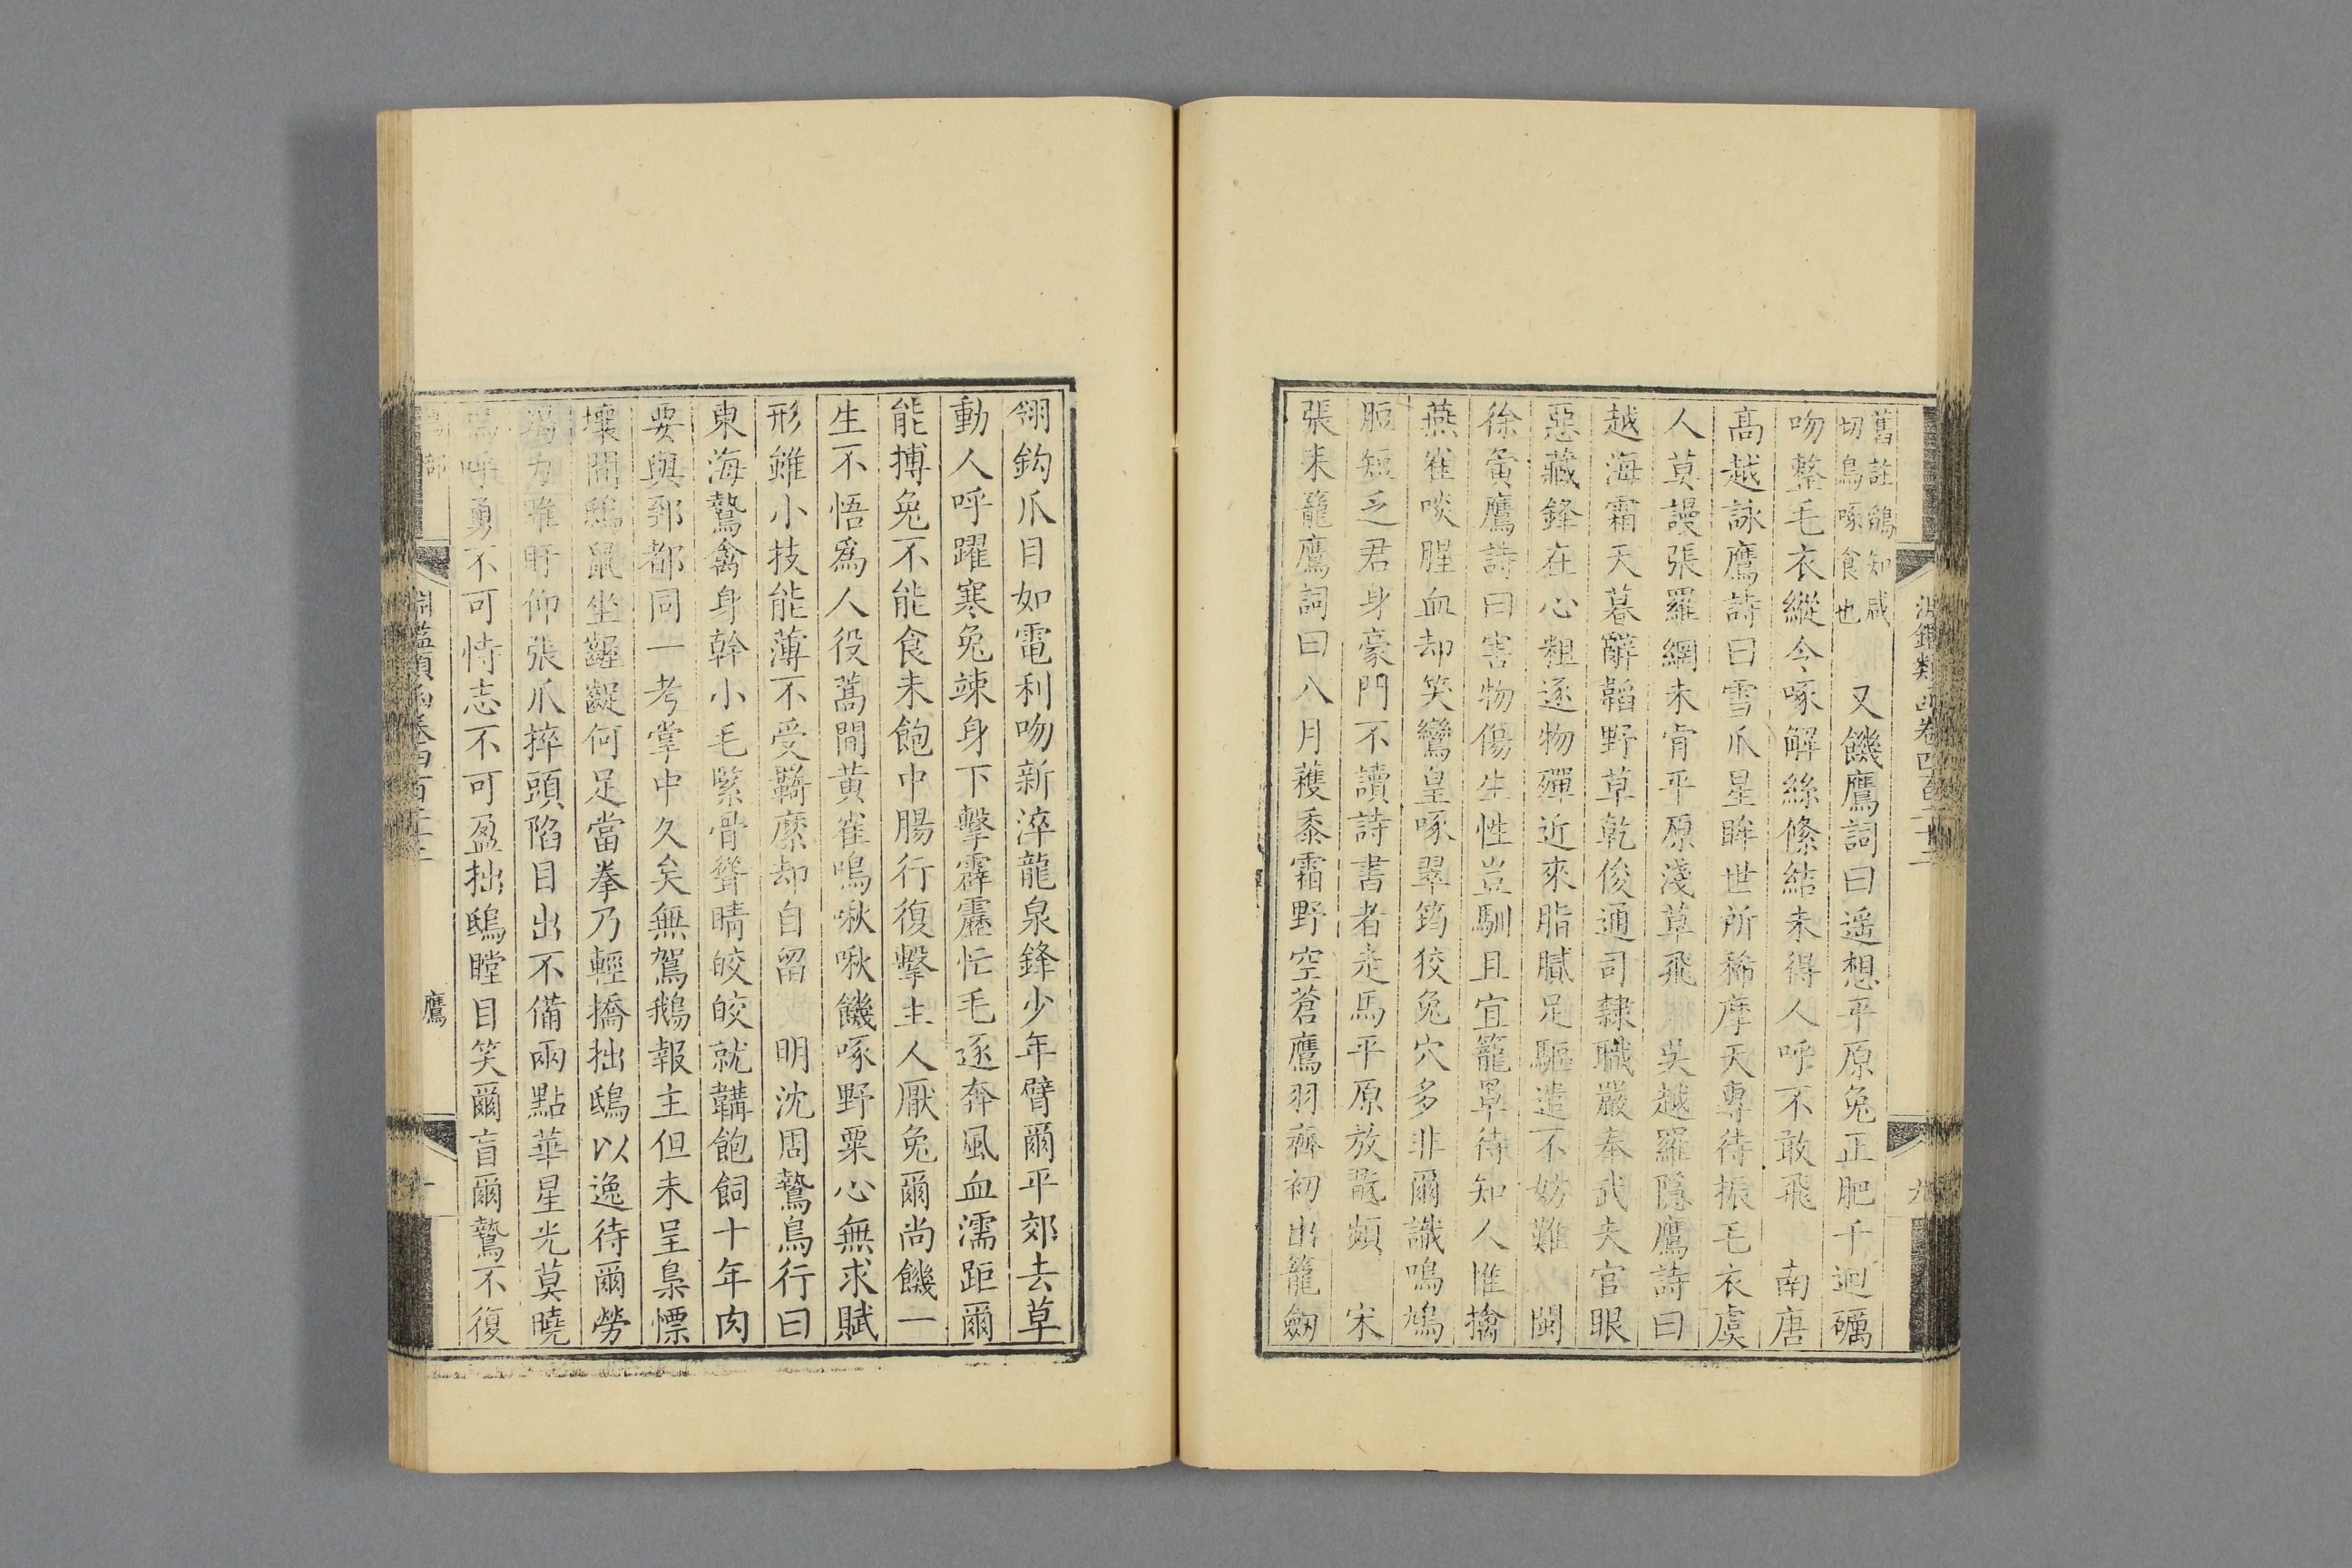 淵鑑類函卷四百二十二
九
舊註鵮知咸
切鳥啄食也
又饑鷹詞曰遥想平原兔正肥千迴礪
吻整毛衣縱令啄解絲絛結未得人呼不敢飛　南唐
高越詠鷹詩曰雪爪星眸世所稀摩天專待振毛衣虞
人莫謾張羅網未肯平原淺草飛　吳越羅隱鷹詩曰
越海霜天暮辭韜野草乾俊通司隸職嚴奉武夫官眼
惡藏鋒在心粗逐物殫近來脂膩足驅遣不妨難　閩
徐夤鷹詩曰害物傷生性豈馴且宜籠罩待知人惟擒
燕雀啖腥血却笑鸞皇啄翠筠狡兔穴多非爾識鳴鳩
脰短乏君身豪門不讀詩書者走馬平原放翫頻　宋
張耒籠鷹詞曰八月穫黍霜野空蒼鷹羽齊初出籠劔
翎鈎爪目如電利吻新淬龍泉鋒少年臂爾平郊去草
動人呼躍寒兔竦身下擊霹靂忙毛逐奔風血濡距爾
能搏兔不能食未飽中腸行復擊主人厭兔爾尚饑一
生不悟爲人役蒿間黄雀鳴啾啾饑啄野粟心無求賦
形雖小技能薄不受羈縻却自留　明沈周鷙鳥行曰
東海鷙禽身幹小毛緊骨聳睛皎皎就韝飽飼十年肉
要與郅都同一考掌中久矣無駕鵝報主但未呈梟慓
壤間鴟鼠坐齷齪何足當拳乃輕撟拙鴟以逸待爾勞
竭力睢盱仰張爪捽頭陷目出不備兩點華星光莫曉
嗚呼勇不可恃志不可盈拙鴟瞠目笑爾盲爾鷙不復
鳥部
淵鑑類函卷四百二十二
鷹
十